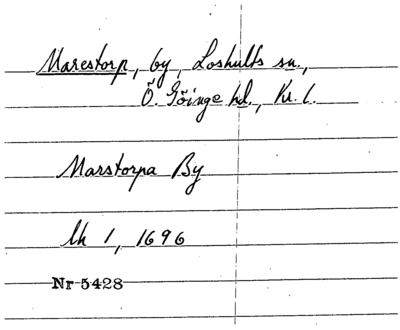 Marestorp, by, Loshults sn.,
Ö. Göinge hd., Kr. l.
Marstorpa By
lk 1, 1696
Nr 5428